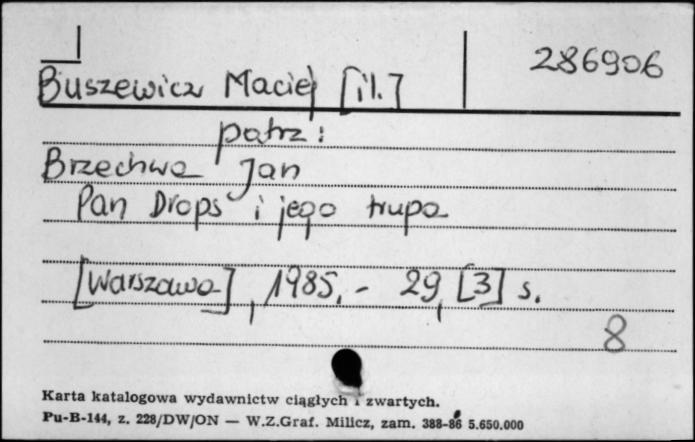 286906
Buszewicz Maciej [il.]
patrz:
Brzechwa Jan
Pan Drops i jego trupa
[Warszawa], 1985. - 29, [3] s.
8
Karta katalogowa wydawnictw ciągłych i zwartych.
Pu-B-144, z. 228/DW/ON — W.Z.Graf. Milicz, zam. 388-86 5.650.000